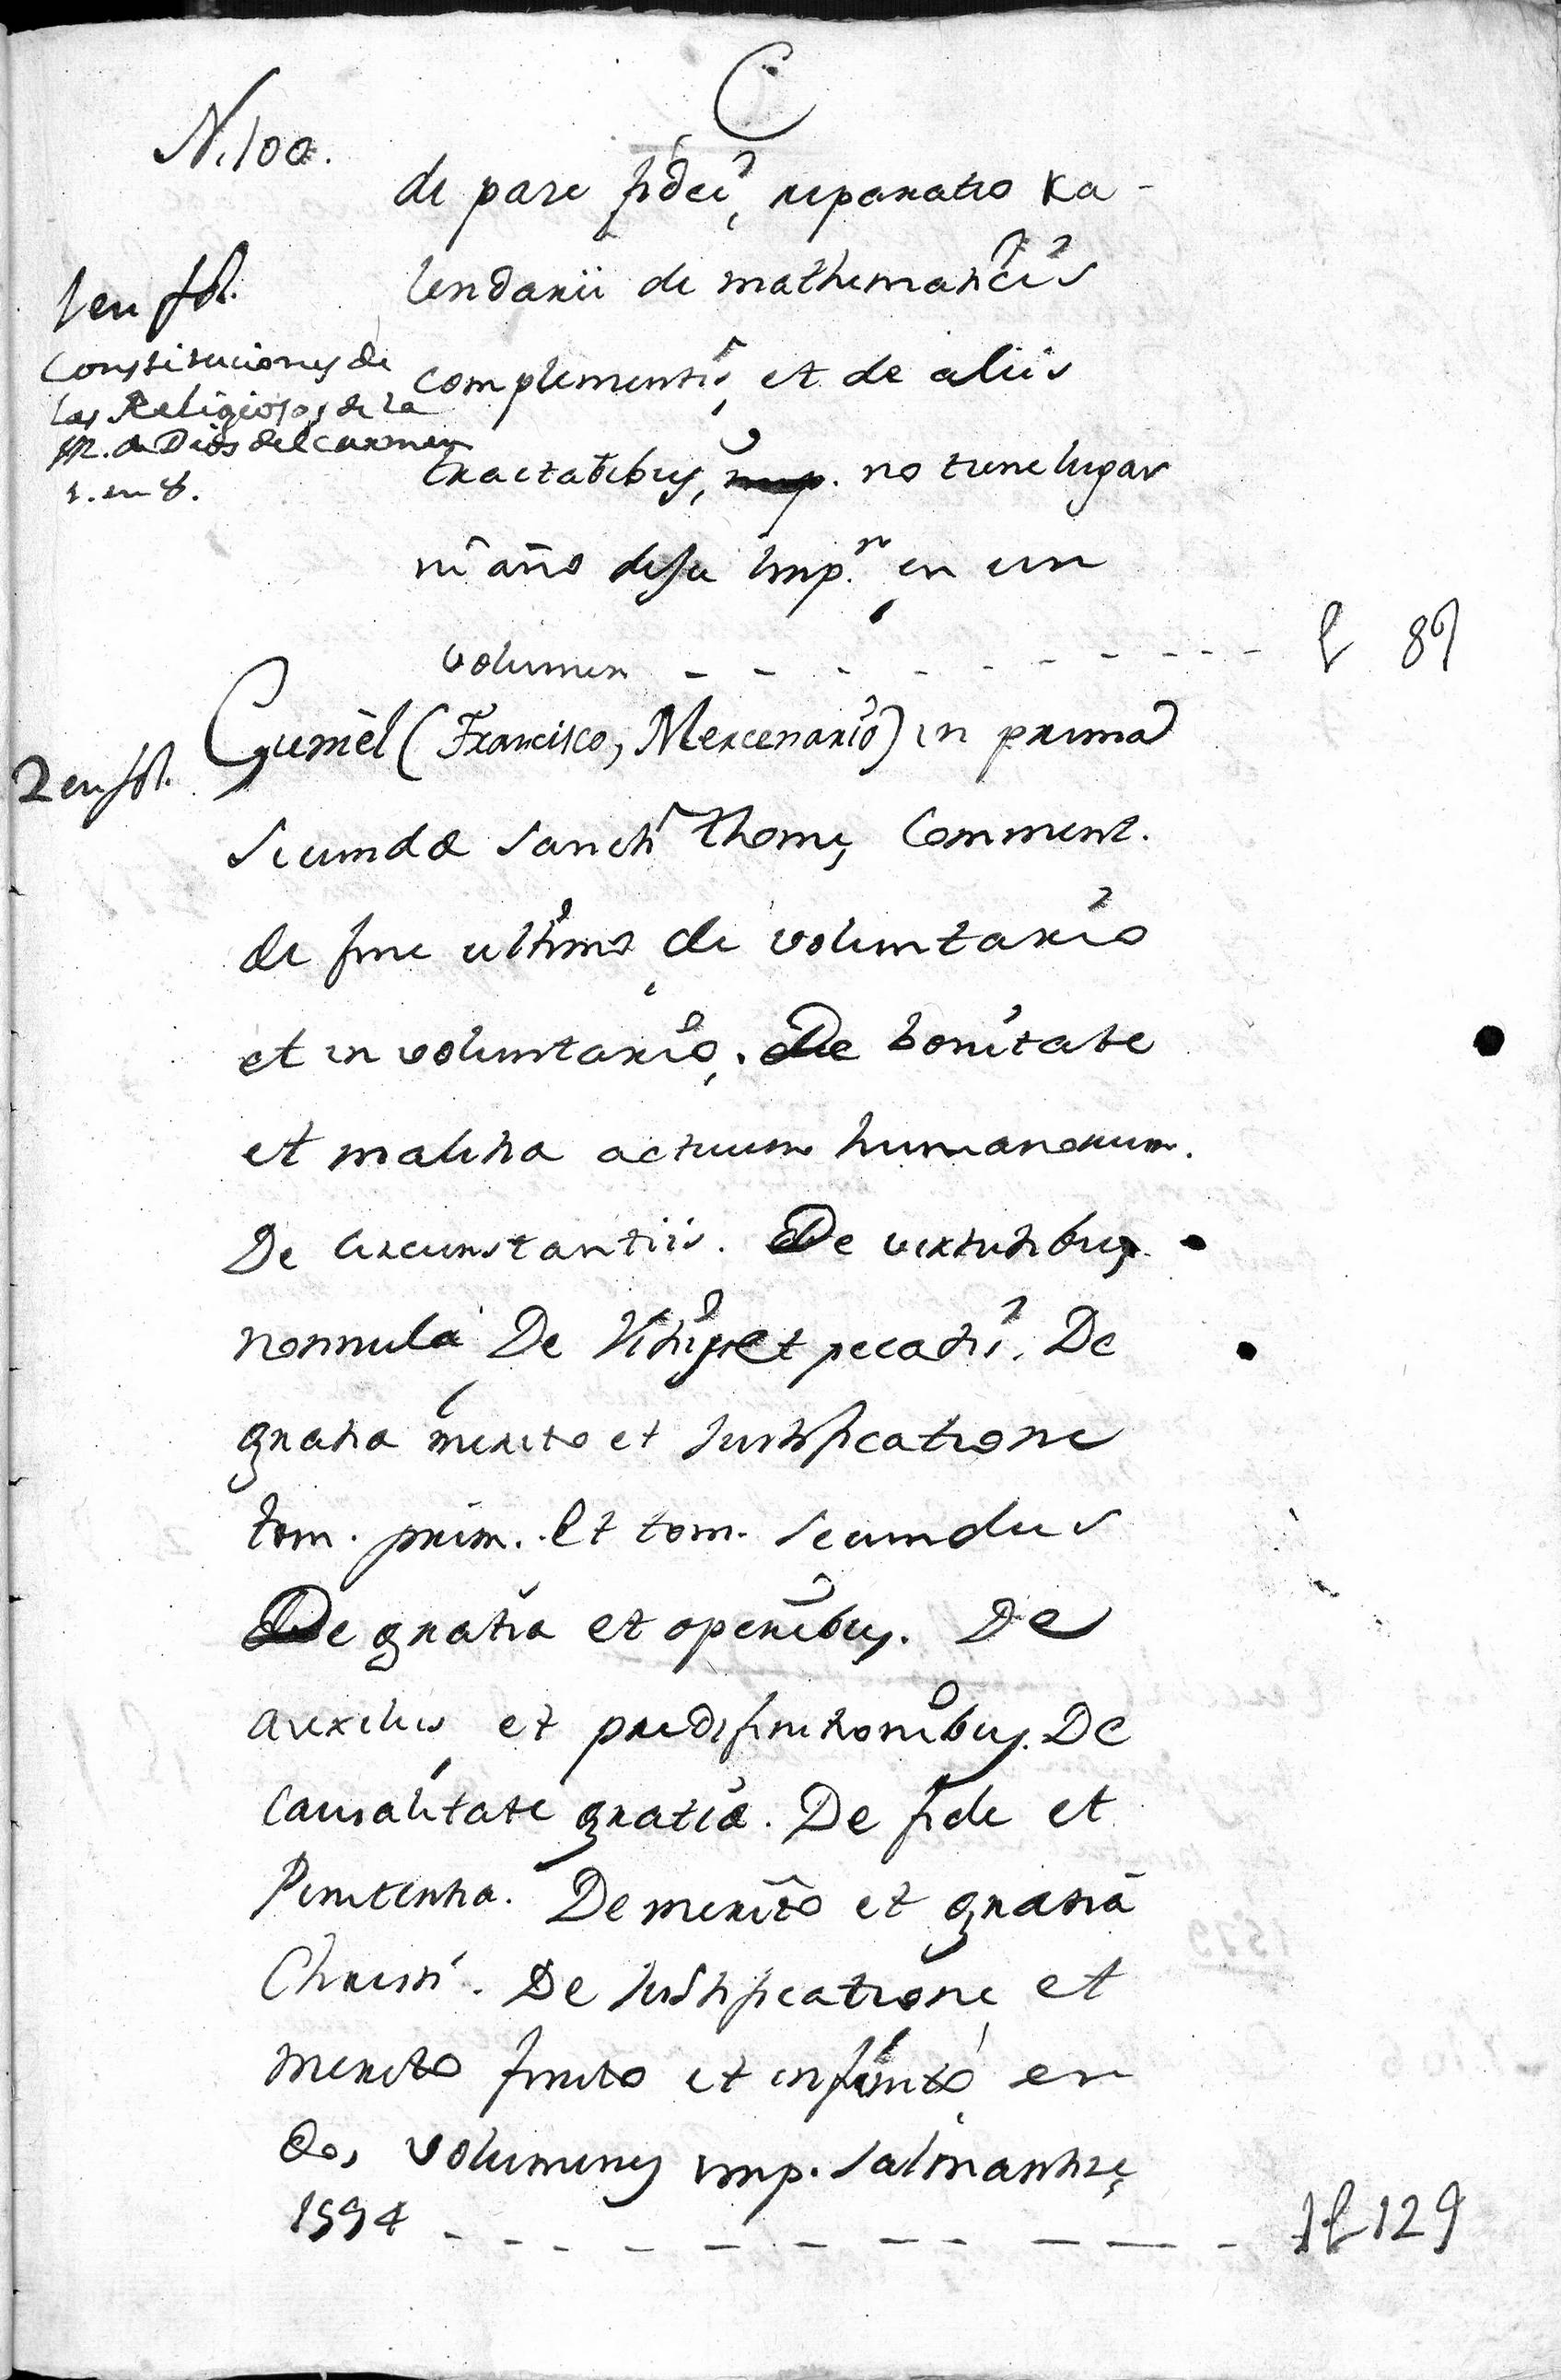 C
N. 100.
de pace fidei, reparatio Ka-
lendarii de mathematicis
complementis, et de aliis
tractatibus, imp. no tiene lugar
ni año desu imp.n en un
volumen
l 89
1 en fol.
Constituciones de
las Religiosas de la
M. de Dios del carmen
1. en 8.
Cumèl (Francisco, Mercenario) in prima
2 en fol.
Secundæ Sancti Thome, Comment.
de fine ultimo, de voluntario
et in voluntario. De bonitate
et malitia actuum humanorum.
De circunstantiis. De virtutibus
nonnula De Vitijs et pecatis. De
gratia merito et Justificatione
tom. prim. Et tom. Secundus
De gratia et operibus. De
auxiliis et predifinitionibus. De
Causalitate gratiæ. De fide et
Penitentia. De merito et gratia
Christi. De Justificatione, et
merito finito et infinito, en
dos volumenes imp. Salmantice,
1594
l 129